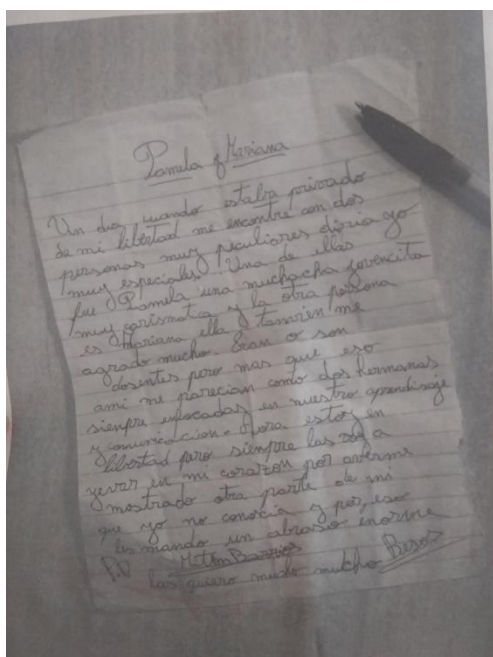 Pamela y Mariana
Un dia cuando estaba privado
de mi libertad me encontre con dos
personas muy peculiares diria yo
muy especiales. Una de ellas
fue Pamela una muchacha jovencita
muy carismatica y la otra persona
es Mariana ella tamvien me
agrado mucho. Eran o son
dosentes pero mas que eso
ami me parecian como dos hermanas
siempre enfocadas en nuestro aprendisaje
y comunicacion. Ahora estoy en
libertad pero siempre las voy a
yevar en mi corazon por averme
mostrado otra parte de mi
que yo no conocia y por eso
les mando un abrasso enorme
P.D Barrios
las quiero mucho mucho Besos